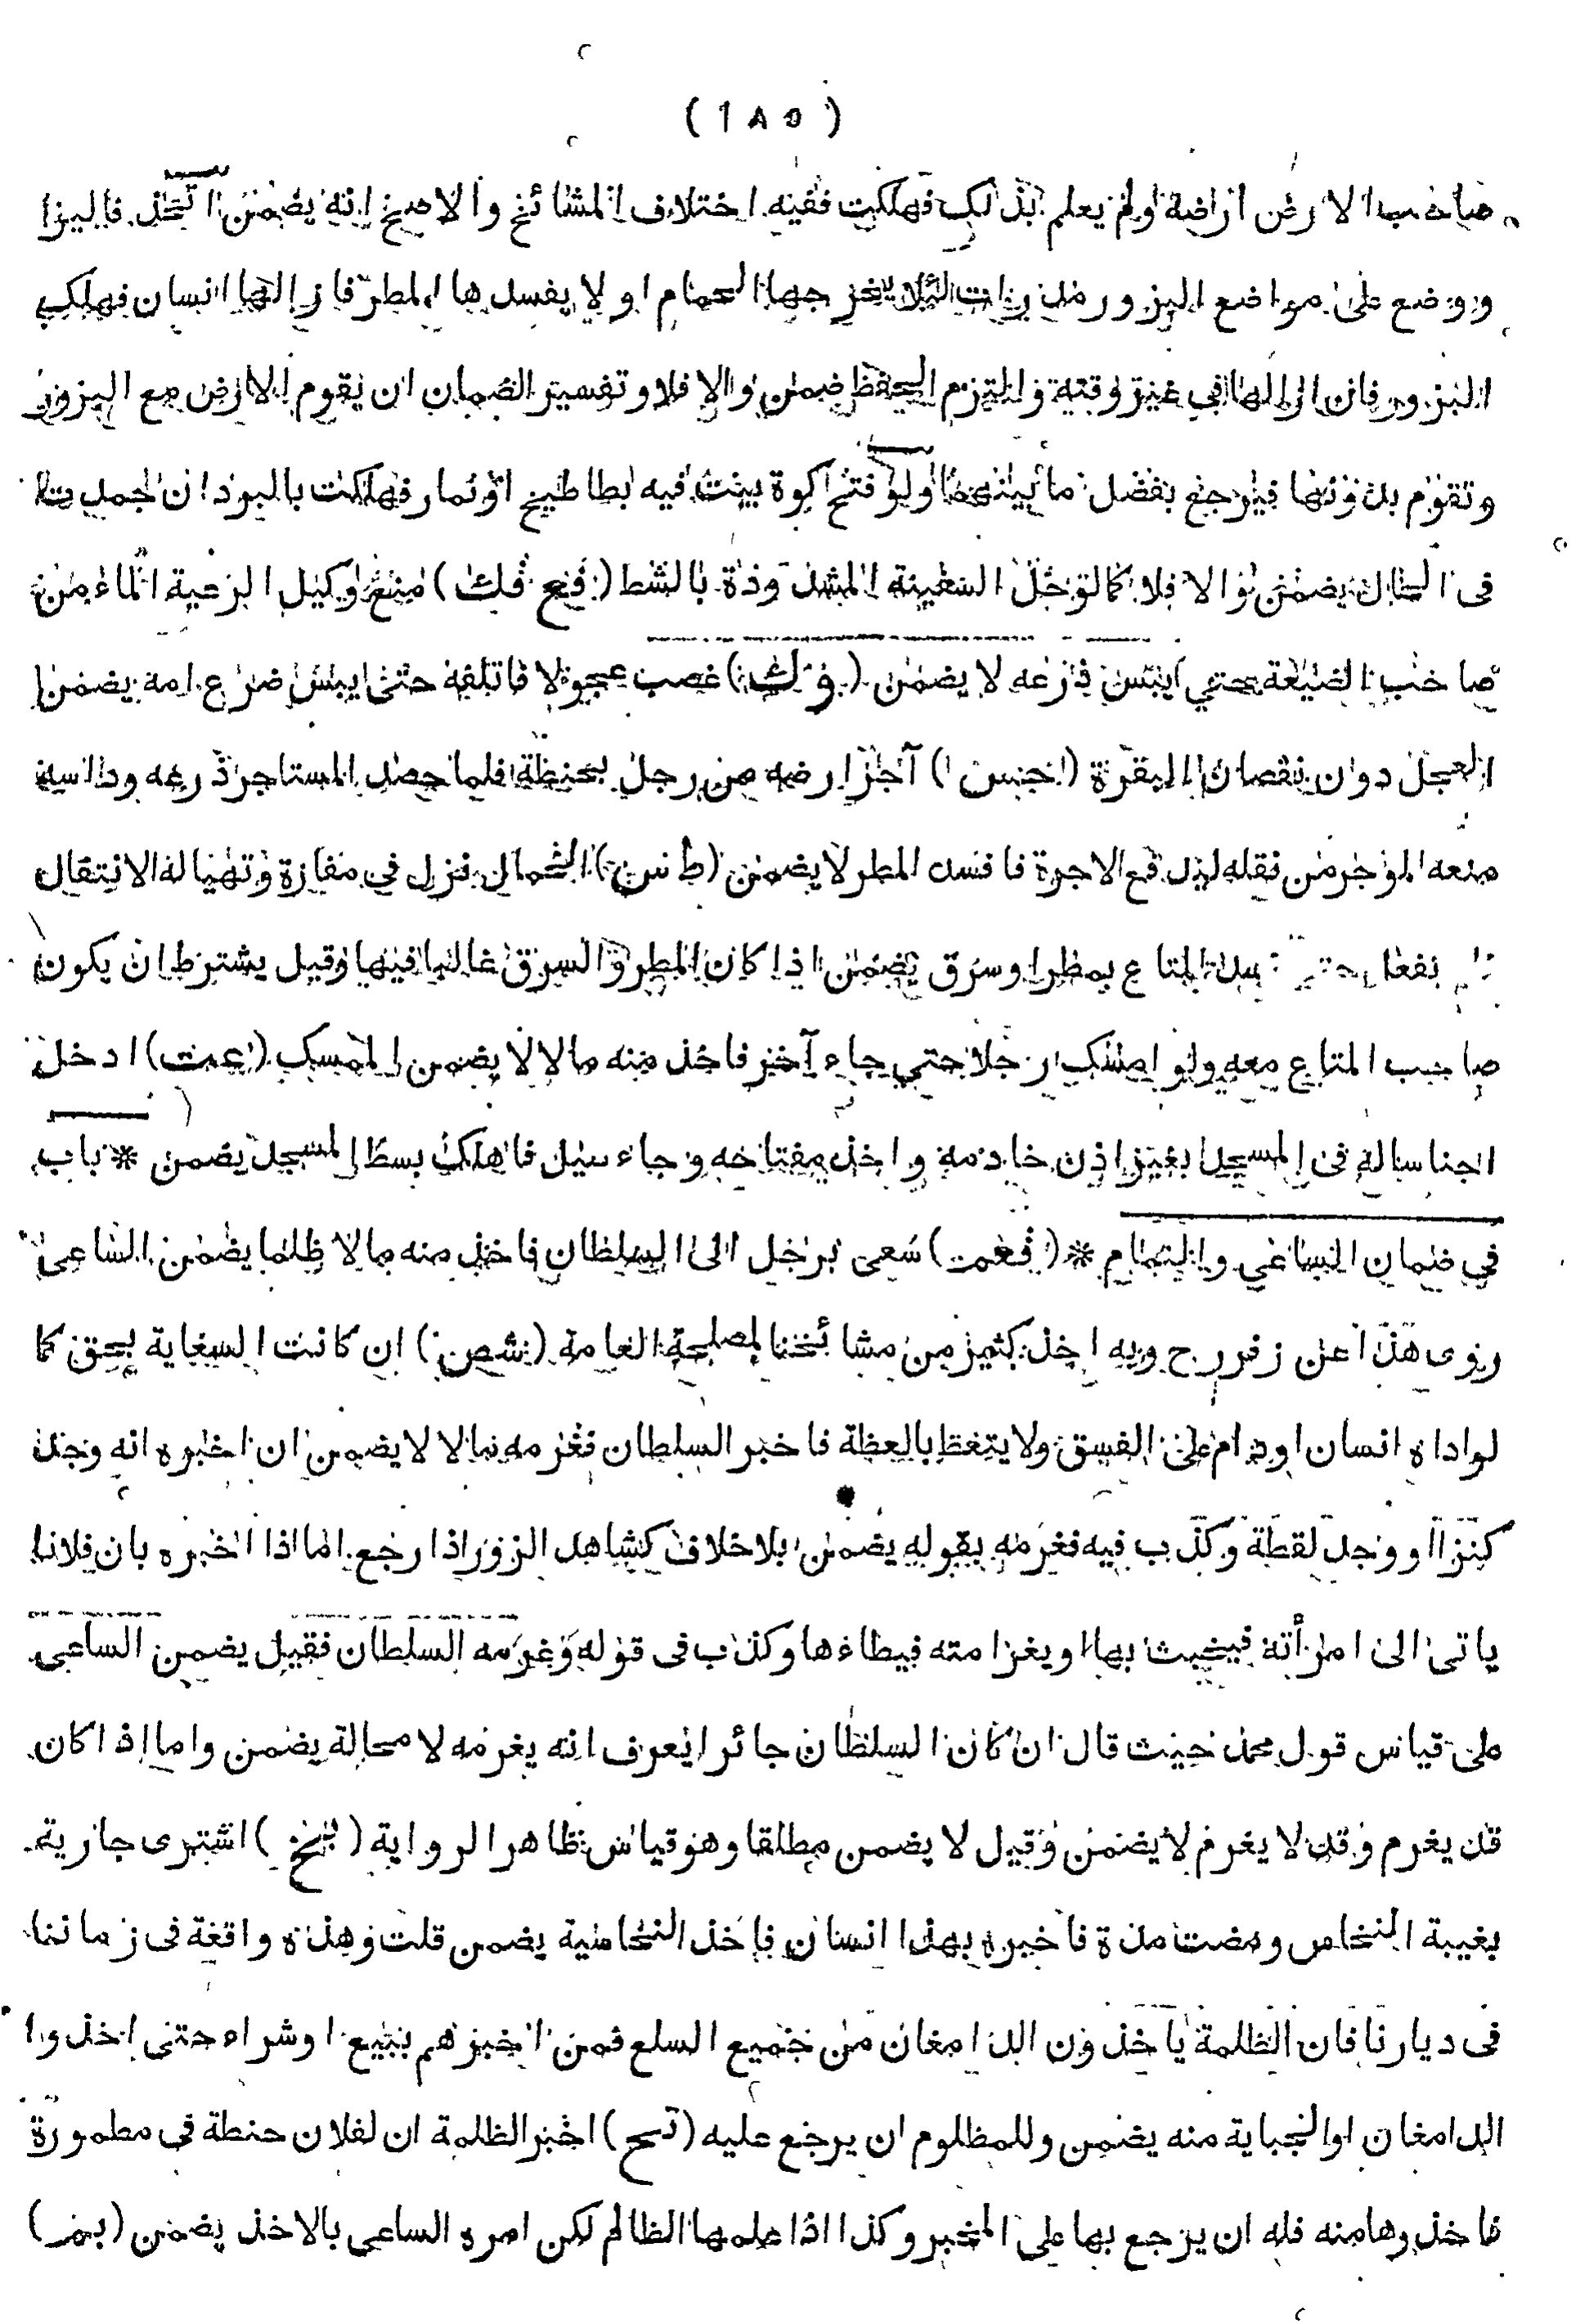 ( ١٨٥ )
صاحب الارض ارضه او لم يعلم بذلك فهلكت ففيه اختلاف المشائخ والاصح انه يضمن
ووضع على مواضع البزور لئلا يخرجها الحمام او لا يفسدها المطر فازالها انسان فهلك
البزور فان ازالها في غير وقته والتزم الحفظ ضمن والا فلا وتفسير الضمان ان يقوم الارض مع البزور
وتقوم بدونها فيرجع بفضل ما بينهما ولو فتح كوة بيت فيه بطاطيخ او ثمار فهلكت بالبرد ان
فى الحال يضمن والا فلا كما لو حل السفينة المشدودة بالشط ( فع فك ) منع وكيل الرعية الماء من
صاحب الضيعة حتى يبس زرعه لا يضمن ( فك ) غصب عجولا فاتلفه حتى يبس ضرع امه يضمن
العجل دون نقصان البقرة ( جنس ) آجر ارضه من رجل بحنطة فلما حصد المستاجر زرعه وداسه
منعه المؤجر من نقله ليدفع الاجرة فافسده المطر لا يضمن ( ط سن ) الحمال نزل في مفازة وتهيا له الانتقال
المتاع بمطر او سرق يضمن اذا كان المطر والسرق غالبا فيها وقيل يشترط ان يكون
صاحب المتاع معه ولو امسك رجلا حتى جاء آخر فاخذ منه مالا لا يضمن الممسك ( عت ) ادخل
اجناسا له فى المسجد بغير اذن خادمه واخذ مفتاحه وجاء سيل فاهلك بسط المسجد يضمن * باب
في ضمان الساعي والنمام * ( فع عت ) سعى برجل الى السلطان فاخذ منه مالا ظلما يضمن الساعى
روى هذا عن زفر رح وبه اخذ كثير من مشائخنا لمصلحة العامة ( شص ) ان كانت السعاية بحق كما
لو اداه انسان او دام على الفسق ولا يتعظ بالعظة فاخبر السلطان فغرمه مالا لا يضمن ان اخبره انه وجد
كنزا او وجد لقطة وكذب فيه فغرمه بقوله يضمن بلا خلاف كشاهد الزور اذا رجع اما اذا اخبره بان فلانا
ياتى الى امرأته فيخبث بها او يغر امته فيطاءها وكذب فى قوله وغرمه السلطان فقيل يضمن الساعى
على قياس قول محمد حيث قال ان كان السلطان جائرا يعرف انه يغرمه لا محالة يضمن واما اذا كان
قد يغرم وقد لا يغرم لا يضمن وقيل لا يضمن مطلقا وهو قياس ظاهر الرواية ( بخ ) اشترى جارية
بغيبة النخاس ومضت مدة فاخبره بهذا انسان فاخذ النخاسية يضمن قلت وهذه واقعة فى زماننا
فى ديارنا فان الظلمة ياخذون الدامغان من جميع السلع فمن اخبرهم ببيع او شراء حتى اخذوا
الدامغان او الجباية منه يضمن وللمظلوم ان يرجع عليه ( سح ) اخبر الظلمة ان لفلان حنطة في مطمورة
فاخذوها منه فله ان يرجع بها على المخبر وكذا اذا علمها الظالم لكن امره الساعى بالاخذ يضمن ( بمر )